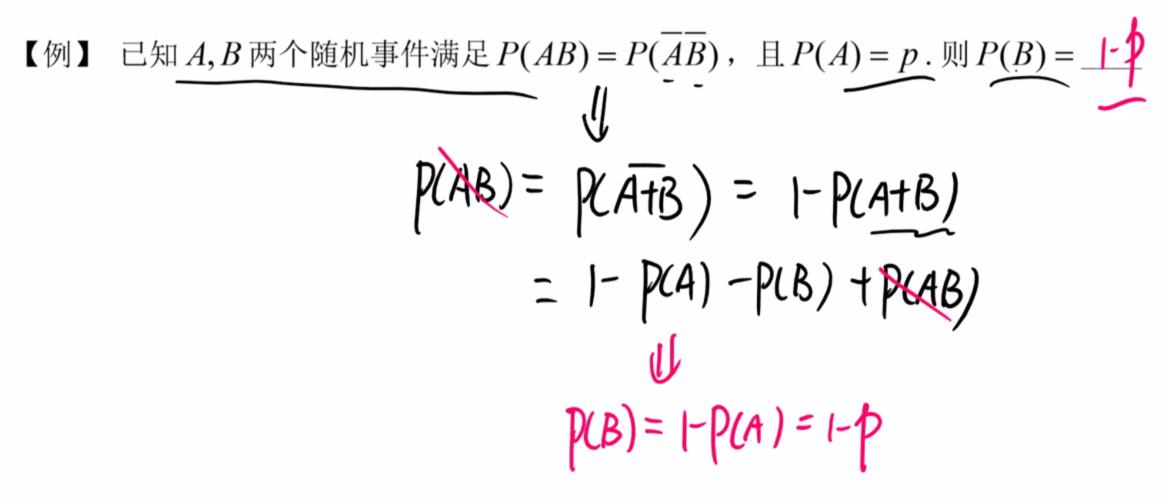 【例】 已知 A, B 两个随机事件满足 P(AB) = P(A̅ B̅)，且 P(A) = p. 则 P(B) = 1-p
⇓
P(AB) = P(A̅+̅B̅) = 1-P(A+B)
= 1- P(A) -P(B) +P(AB)
⇓
P(B) = 1-P(A) = 1-p